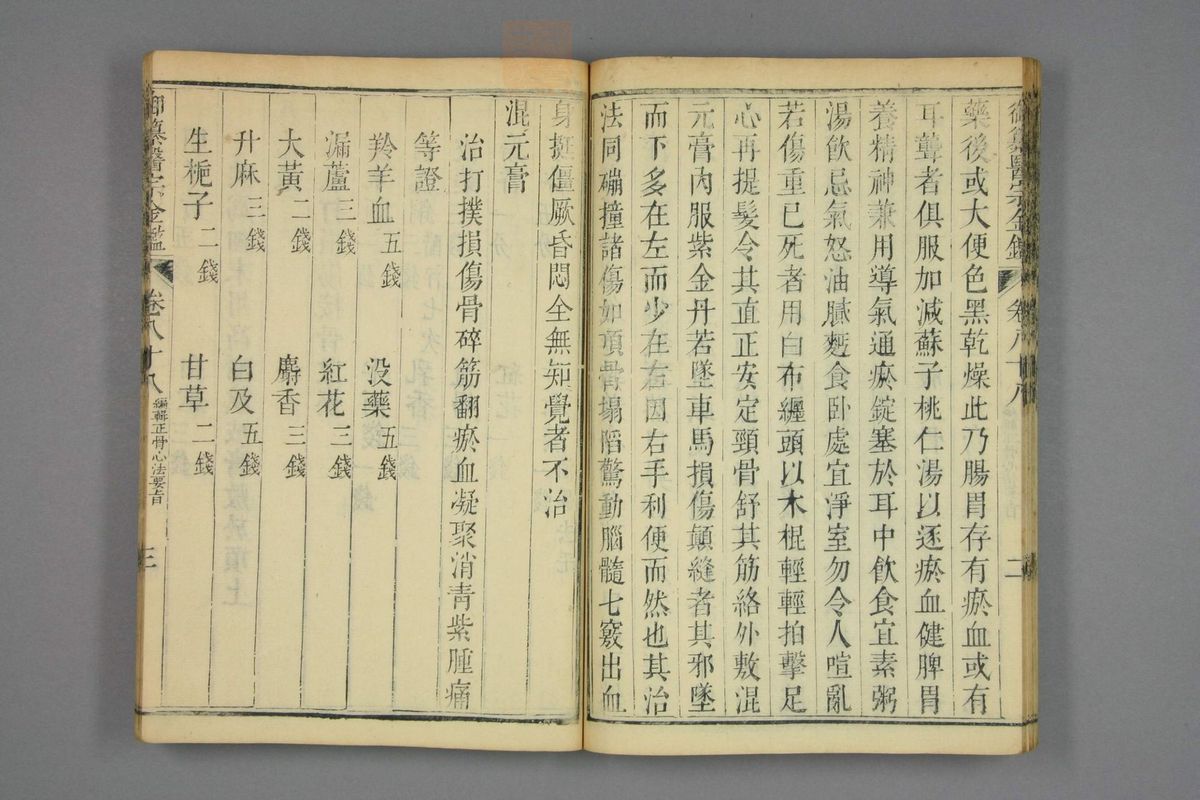 御纂醫宗金鑑 卷八十八 二
藥後或大便色黑乾燥此乃腸胃存有瘀血或有
耳聾者俱服加減蘇子桃仁湯以逐瘀血健脾胃
養精神兼用導氣通瘀錠塞於耳中飲食宜素粥
湯飲忌氣怒油膩麪食卧處宜淨室勿令人喧亂
若傷重已死者用白布纏頭以木棍輕輕拍擊足
心再提髮令其直正安定頸骨舒其筋絡外敷混
元膏內服紫金丹若墜車馬損傷顛縫者其邪墜
而下多在左而少在右因右手利便而然也其治
法同磞撞諸傷如頂骨塌陷驚動腦髓七竅出血
身挺僵厥昏悶全無知覺者不治
混元膏
治打撲損傷骨碎筋翻瘀血凝聚消青紫腫痛
等證
羚羊血五錢 没藥五錢
漏蘆三錢 紅花三錢
大黃二錢 麝香三錢
升麻三錢 白及五錢
生梔子二錢 甘草二錢
御纂醫宗金鑑 卷八十八 編輯正骨心法要旨 三